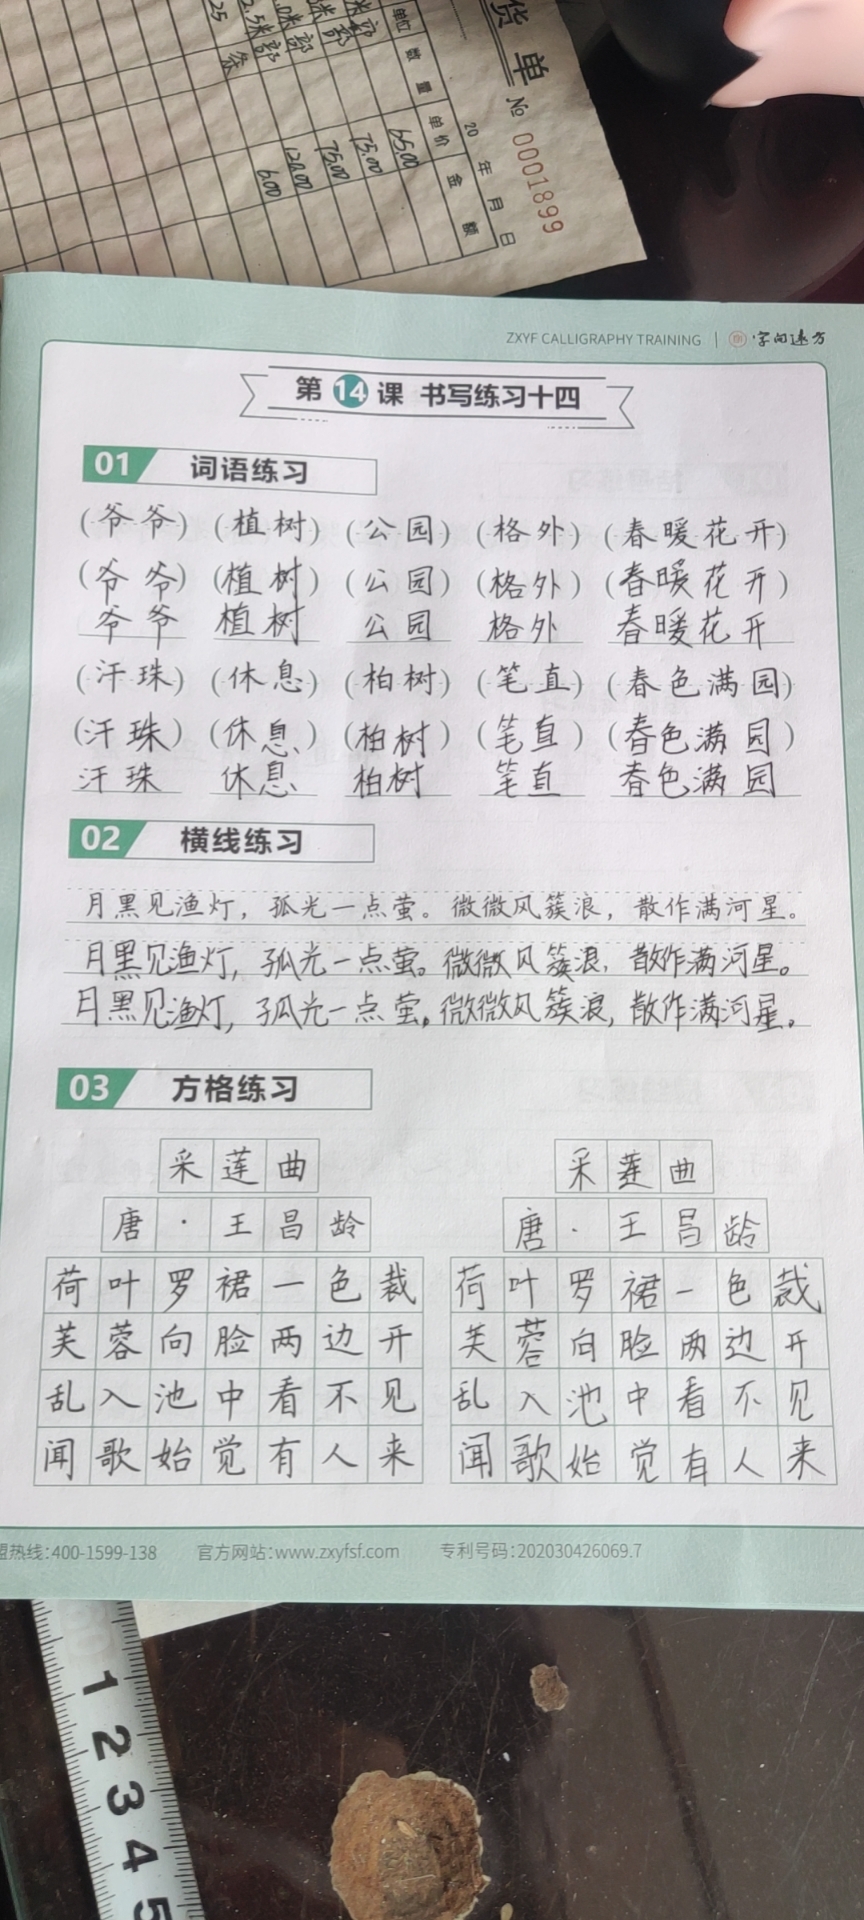 货单
№ 0001899
20 年 月 日
单位 数量 单价 金额
65.00
75.00
75.00
120.00
6.00
ZXYF CALLIGRAPHY TRAINING | 字间远方
第 14 课 书写练习十四
01 词语练习
(爷爷) (植树) (公园) (格外) (春暖花开)
(爷爷) (植树) (公园) (格外) (春暖花开)
爷爷 植树 公园 格外 春暖花开
(汗珠) (休息) (柏树) (笔直) (春色满园)
(汗珠) (休息) (柏树) (笔直) (春色满园)
汗珠 休息 柏树 笔直 春色满园
02 横线练习
月黑见渔灯，孤光一点萤。微微风簇浪，散作满河星。
月黑见渔灯，孤光一点萤。微微风簇浪，散作满河星。
月黑见渔灯，孤光一点萤。微微风簇浪，散作满河星。
03 方格练习
采莲曲 采莲曲
唐·王昌龄 唐·王昌龄
荷叶罗裙一色裁 荷叶罗裙一色裁
芙蓉向脸两边开 芙蓉向脸两边开
乱入池中看不见 乱入池中看不见
闻歌始觉有人来 闻歌始觉有人来
盟热线:400-1599-138 官方网站:www.zxyfsf.com 专利号码:202030426069.7
1 2 3 4 5